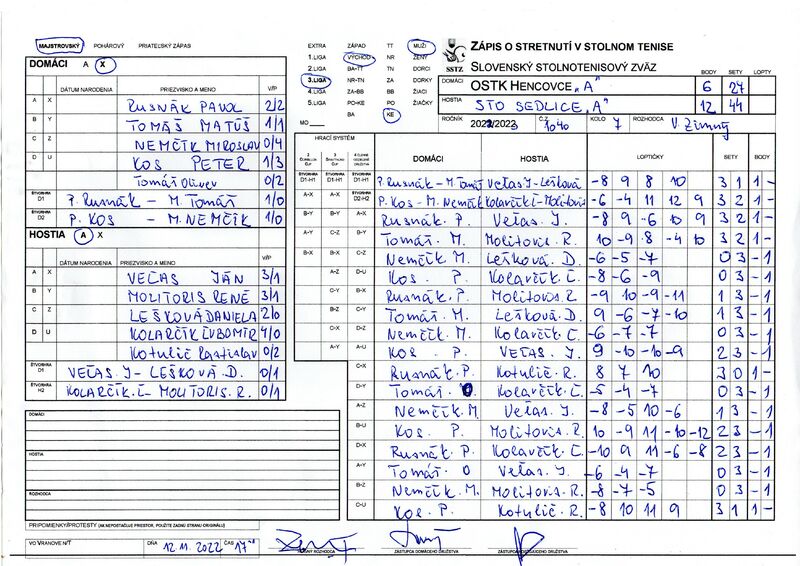 MAJSTROVSKÝ POHÁROVÝ PRIATEĽSKÝ ZÁPAS
DOMÁCI A X
DÁTUM NARODENIA PRIEZVISKO A MENO V/P
A X RUSNÁK PAVOL 2/2
B Y TOMÁŠ MATÚŠ 1/1
C Z NEMČÍK MIROSLAV 0/4
D U KOS PETER 1/3
TOMÁŠ Oliver 0/2
ŠTVORHRA D1 P. RUSNÁK – M. TOMÁŠ 1/0
ŠTVORHRA D2 P. KOS – M. NEMČÍK 1/0
HOSTIA A X
DÁTUM NARODENIA PRIEZVISKO A MENO V/P
A X VEĽAS JÁN 3/1
B Y MOLITORIS RENÉ 3/1
C Z LEŠKOVÁ DANIELA 2/0
D U KOLARČÍK ĽUBOMÍR 4/0
Kotulič Rastislav 0/2
ŠTVORHRA VEĽAS. J – LEŠKOVÁ D. 0/1
ŠTVORHRA H2 KOLARČÍK. Ľ – MOLITORIS. R. 0/1
DOMÁCI
HOSTIA
ROZHODCA
PRIPOMIENKY/PROTESTY (AK NEPOSTAČUJE PRIESTOR, POUŽITE ZADNÚ STRANU ORIGINÁLU)
VO VRANOVE N/T DŇA 12.11.2022 ČAS 17
HLAVNÝ ROZHODCA ZÁSTUPCA DOMÁCEHO DRUŽSTVA
EXTRA ZÁPAD TT MUŽI
1.LIGA VÝCHOD NR ŽENY
2.LIGA BA-TT TN DORCI
3.LIGA NR-TN ZA DORKY
4.LIGA ZA-BB BB ŽIACI
5.LIGA PO-KE PO ŽIAČKY
BA KE
MO
SSTZ
ZÁPIS O STRETNUTÍ V STOLNOM TENISE
SLOVENSKÝ STOLNOTENISOVÝ ZVÄZ
BODY SETY LOPTY
DOMÁCI OSTK HENCOVCE „A" 6 27
HOSTIA STO SEDLICE „A" 12 44
ROČNÍK Č.Z. 1040 KOLO 7 ROZHODCA V. Zimný
HRACÍ SYSTÉM
DOMÁCI HOSTIA LOPTIČKY SETY BODY
ŠTVORHRA D1-H1 ŠTVORHRA D1-H1 ŠTVORHRA D1-H1 P. Rusnák – M. Tomáš Veľas J – Lešková –8 9 8 10 3 1 1 –
A-X A-X ŠTVORHRA D2-H2 P. Kos – M. Nemčík Kolarčík Ľ – Molitoris –6 –4 11 12 9 3 2 1 –
B-Y B-Y A-X Rusnák. P. Veľas. J. –8 9 –6 10 9 3 2 1 –
A-Y C-Z B-Y Tomáš. M. Molitoris. R. 10 –9 8 –4 10 3 2 1 –
B-X B-X C-Z Nemčík. M. Lešková. D. –6 –5 –7 0 3 – 1
A-Z D-U Kos. P. Kolarčík. Ľ. –8 –6 –9 0 3 – 1
C-Y B-X Rusnák. P. Molitoris. R –9 10 –9 –11 1 3 – 1
B-Z Tomáš. M. Lešková. D. 9 –6 –7 –10 1 3 – 1
C-X Nemčík. M. Kolarčík. Ľ. –6 –7 –7 0 3 – 1
A-Y Kos. P. Veľas. J. 9 –10 –10 –9 2 3 – 1
C-X Rusnák. P. Kotulič. R 8 7 10 3 0 1 –
D-Y Tomáš. O. Kolarčík. Ľ. –5 –4 –7 0 3 – 1
A-Z Nemčík. M. Veľas. J. –8 –5 10 –6 1 3 – 1
B-U Kos. P. Molitoris. R. 10 –9 11 –10 –12 2 3 – 1
D-X Rusnák. P. Kolarčík Ľ –10 9 11 –6 –8 2 3 – 1
A-Y Tomáš. O Veľas. J. –6 –4 –7 0 3 – 1
B-Z Nemčík. M. Molitoris. R. –8 –7 –5 0 3 – 1
C-U Kos. P. Kotulič. R. –8 10 11 9 3 1 1 –